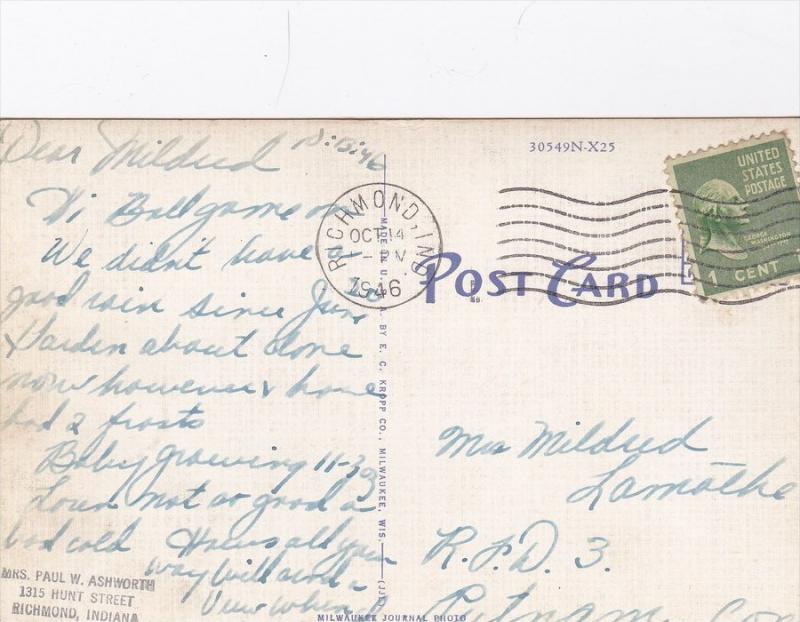 Dear Mildred 10:15:46
Hi Ballgame on
We didn't have a
good rain since June
Garden about done
now however & have
had 2 frosts
Baby growing 11-3
Loun not so good a
bad cold Hows all your
way Will send a
View when
MRS. PAUL W. ASHWORTH
1315 HUNT STREET
RICHMOND, INDIANA
MADE IN U. S. A. BY E. C. KROPP CO., MILWAUKEE, WIS.
MILWAUKEE JOURNAL PHOTO
30549N-X25
RICHMOND, IND.
OCT 14
1946
POST CARD
UNITED
STATES
POSTAGE
GEORGE
WASHINGTON
1 CENT
Mrs Mildred
Lamothe
R.F.D. 3.
Putnam, Con